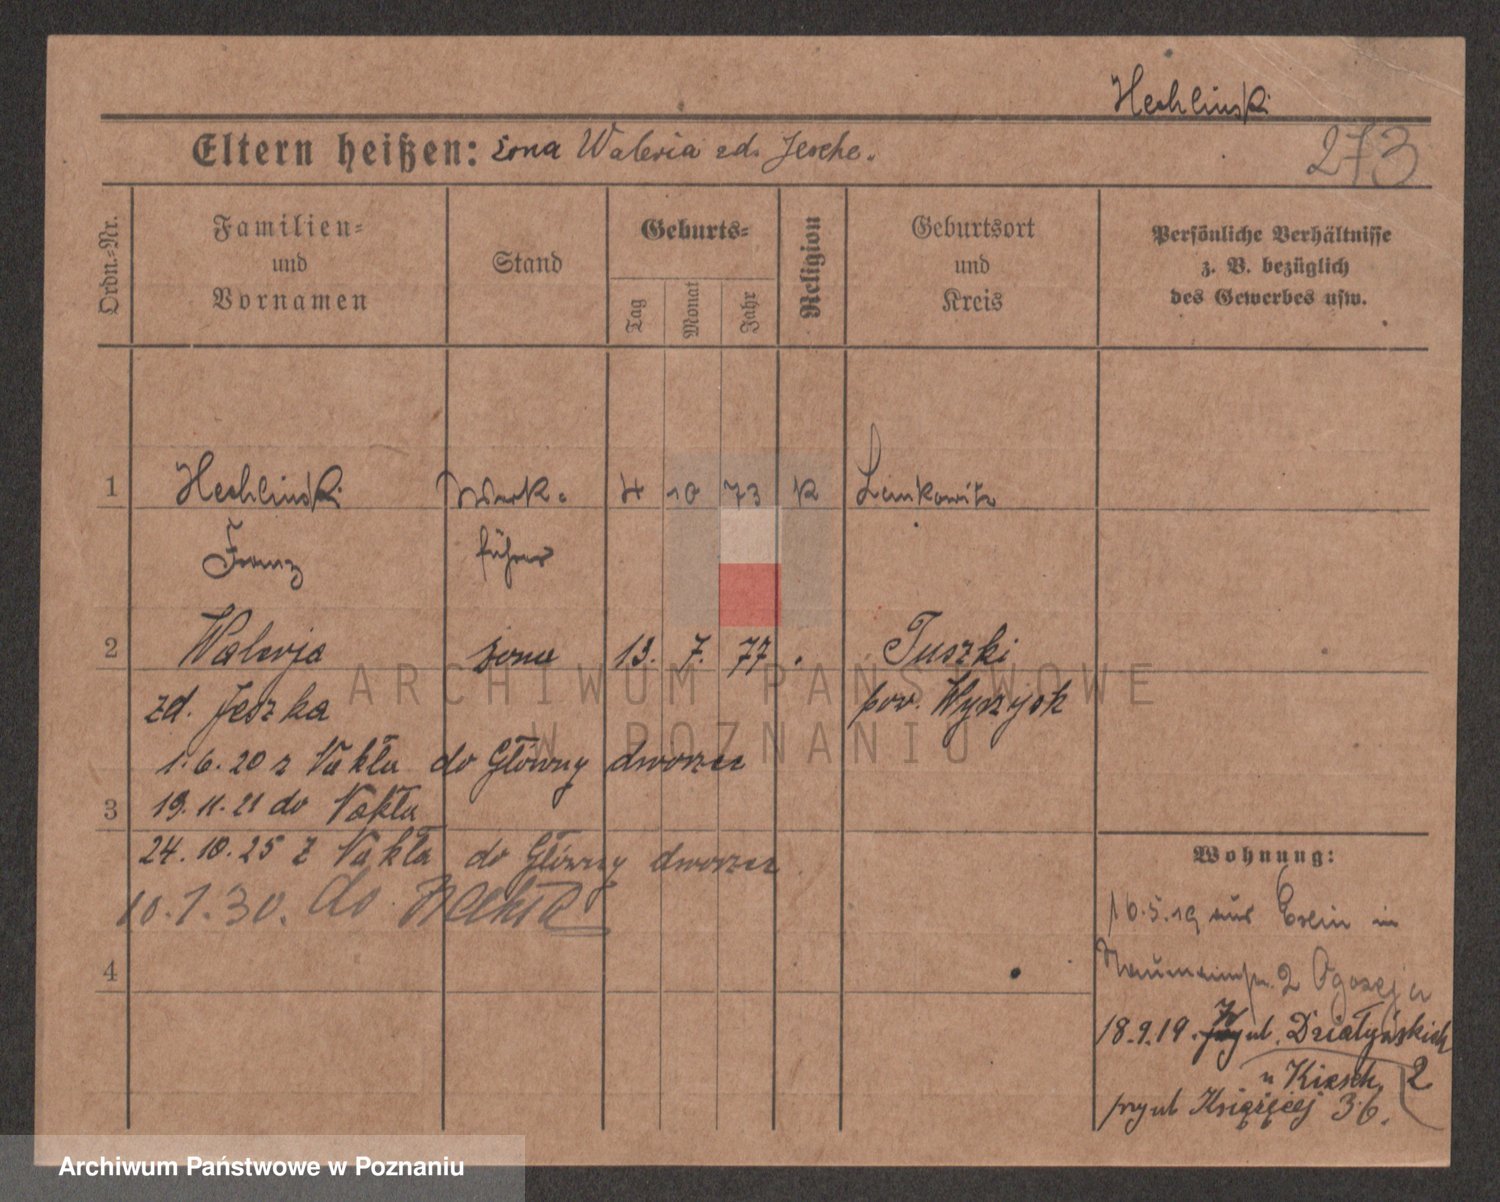 Hechlinski
Eltern heißen: żona Waleria zd. Jeschke.
273
Ordn.-Nr.
Familien-
und
Vornamen
Stand
Geburts-
Tag
Monat
Jahr
Religion
Geburtsort
und
Kreis
Persönliche Verhältnisse
z. B. bezüglich
des Gewerbes usw.
1 Hechlinski Werk- 4 10 73 K
Franz führer
2 Walerja żona 13. 7. 77 Tuszki
zd. Jeszka pow. Wyrzysk
1.6.20 z Nakła do Główny dworzec
3 19.11.21 do Nakła
24.10.25 z Nakła do Główny dworzec
10.1.30. do Nakła
4
Wohnung:
16.5.19 aus Exin in
Naumannstr. 2
18.9.19. ul. Działyńskich 2
u Kirsch
przy ul Księżęcej 36.
ARCHIWUM PAŃSTWOWE
W POZNANIU
Archiwum Państwowe w Poznaniu